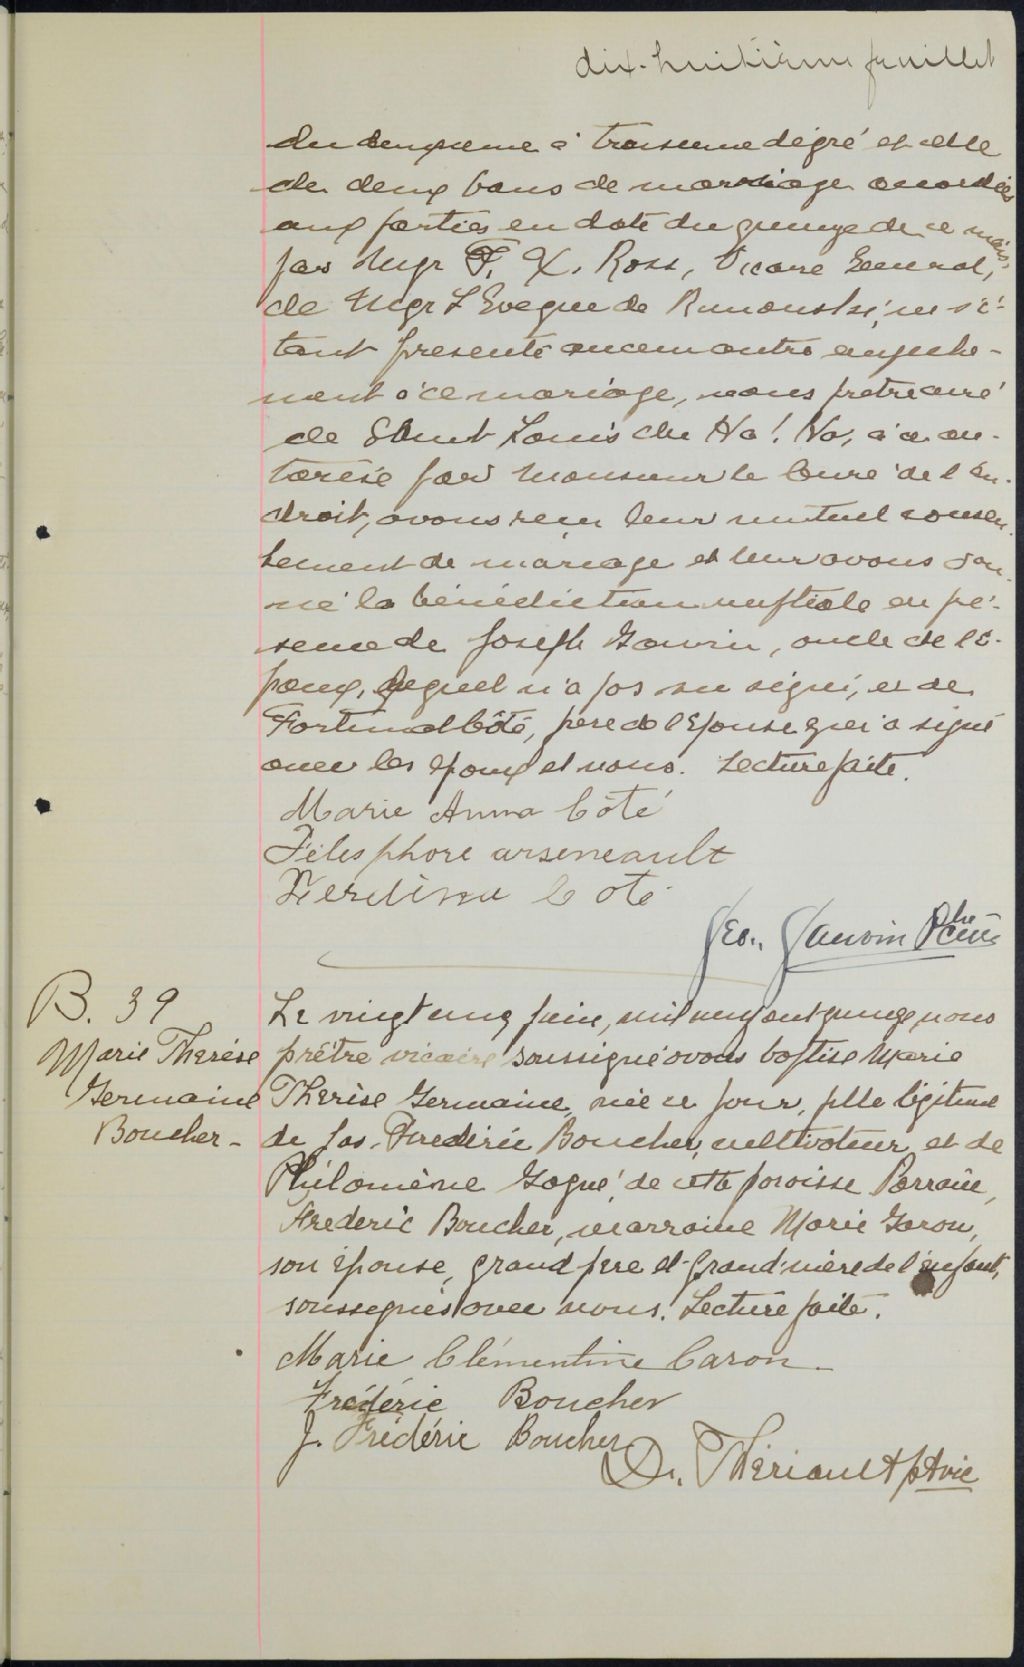 dix-huitième feuillet
du deuxieme à troisieme dégré et celle
de deux bans de marriage accordées
aux parties en date du quinze de ce mois,
par Mgr F. X. Ross, Vicaire General,
de Mgr L'Evêque de Rimouski, ne s'é-
tant présenté aucun autre empêche-
ment à ce mariage, nous prêtre curé
de Saint Louis du Ha! Ha, à ce au-
torisé par Monsieur le Curé de l'en-
droit, avons reçu leur mutuel consen-
tement de mariage et leur avons don-
né la bénédiction nuptiale en pré-
sence de Joseph Gauvin, oncle de l'é-
poux, lequel n'a pas su signer, et de
Côté, père de l'épouse qui a signé
avec les époux et nous. Lecture faite.
Marie Anna Côté
Télesphore arseneault
Côté
Geo. Gauvin Ptre Curé
B. 39
Marie Therése
Germaine
Boucher -
Le vingt cinq juin, mil neuf cent quinze nous
prêtre vicaire soussigné avons baptisé Marie
Thérèse Germaine, née ce jour, fille légitime
de Jos. Frederic Boucher, cultivateur, et de
Philomène Gagné, de cette paroisse Parrain,
Frederic Boucher, marraine Marie Caron,
son épouse, grand père et grand'mère de l'enfant,
soussignés avec nous. Lecture faite.
Marie Clémentine Caron
Frédéric Boucher
J. Frédéric Boucher
D. Thériault ptre vic